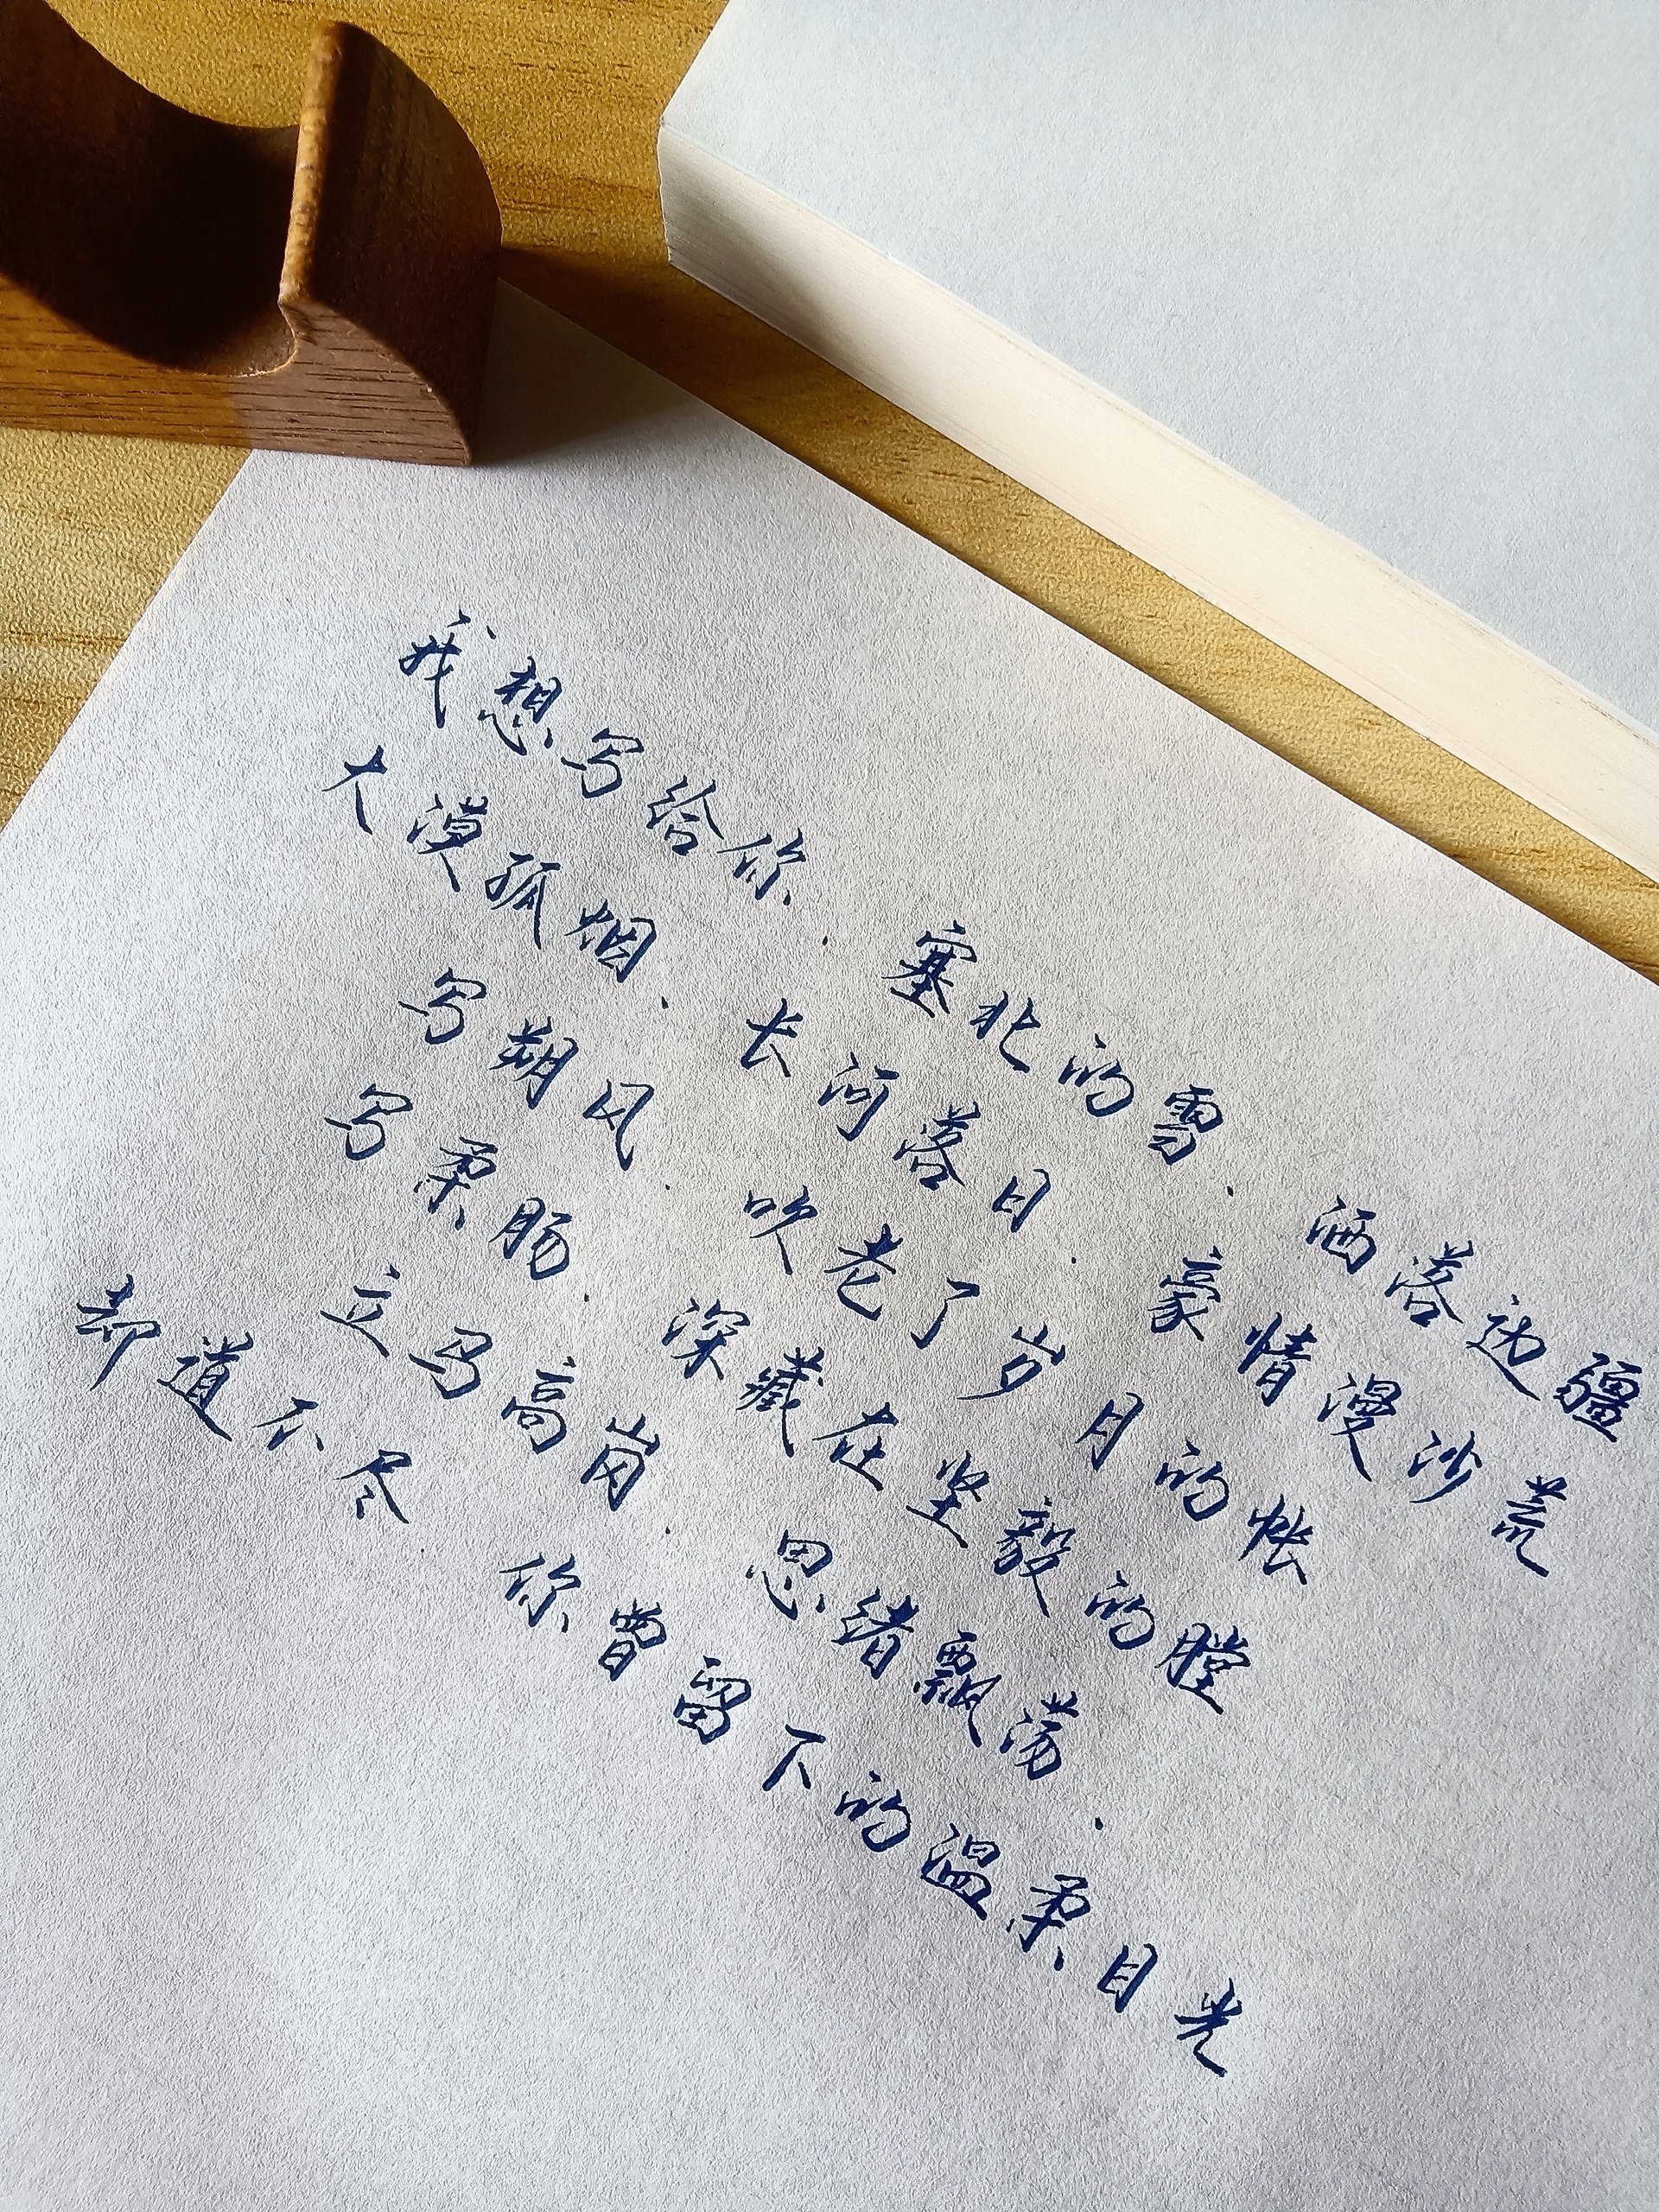 我想写给你．塞北的雪．洒落边疆
大漠孤烟．长河落日．豪情漫沙荒
写朔风．吹老了岁月的帐
写柔肠．深藏在坚毅的膛
立马高岗．思绪飘荡．
却道不尽．你曾留下的温柔目光